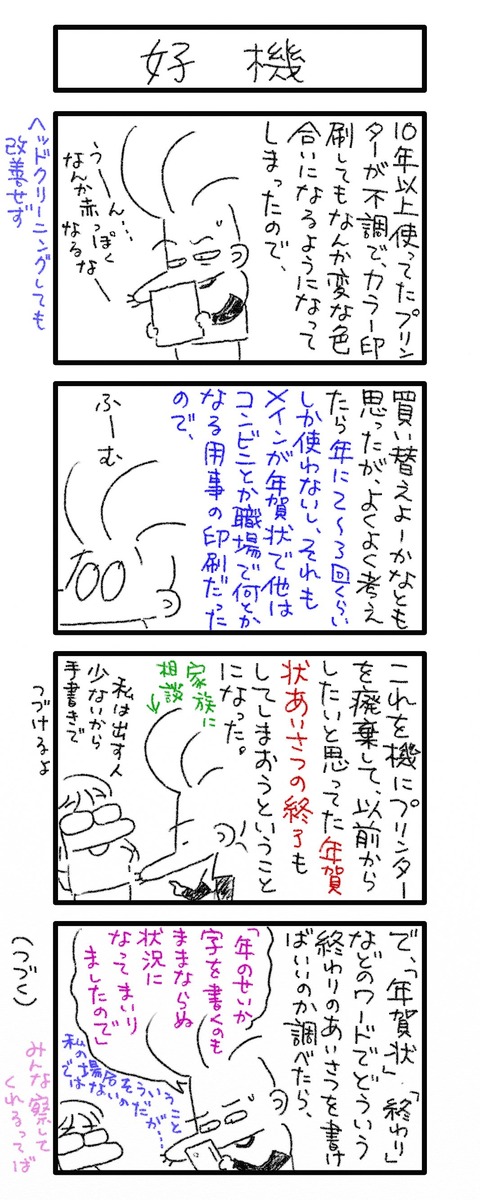 好機
10年以上使ってたプリン
ターが不調で、カラー印
刷してもなんか変な色
合いになるようになって
しまったので、
うーん…
なんか赤っぽく
なるなー
ヘッドクリーニングしても
改善せず
買い替えよーかなとも
思ったが、よくよく考え
たら年に2〜3回くらい
しか使わないし、それも
メインが年賀状で他は
コンビニとか職場で何とか
なる用事の印刷だった
ので、
ふーむ
これを機にプリンター
を廃棄して、以前から
したいと思ってた年賀
状あいさつの終了も
してしまおうということ
になった。
家族に
相談
私は出す人
少ないから
手書きで
つづけるよ
で、「年賀状」「終わり」
などのワードでどういう
終わりのあいさつを書け
ばいいのか調べたら、
「年のせいか
字を書くのも
ままならぬ
状況に
なってまいり
ましたので」
私の場合そういうこと
ではないのだが…
みんな察して
くれるってば
(つづく)